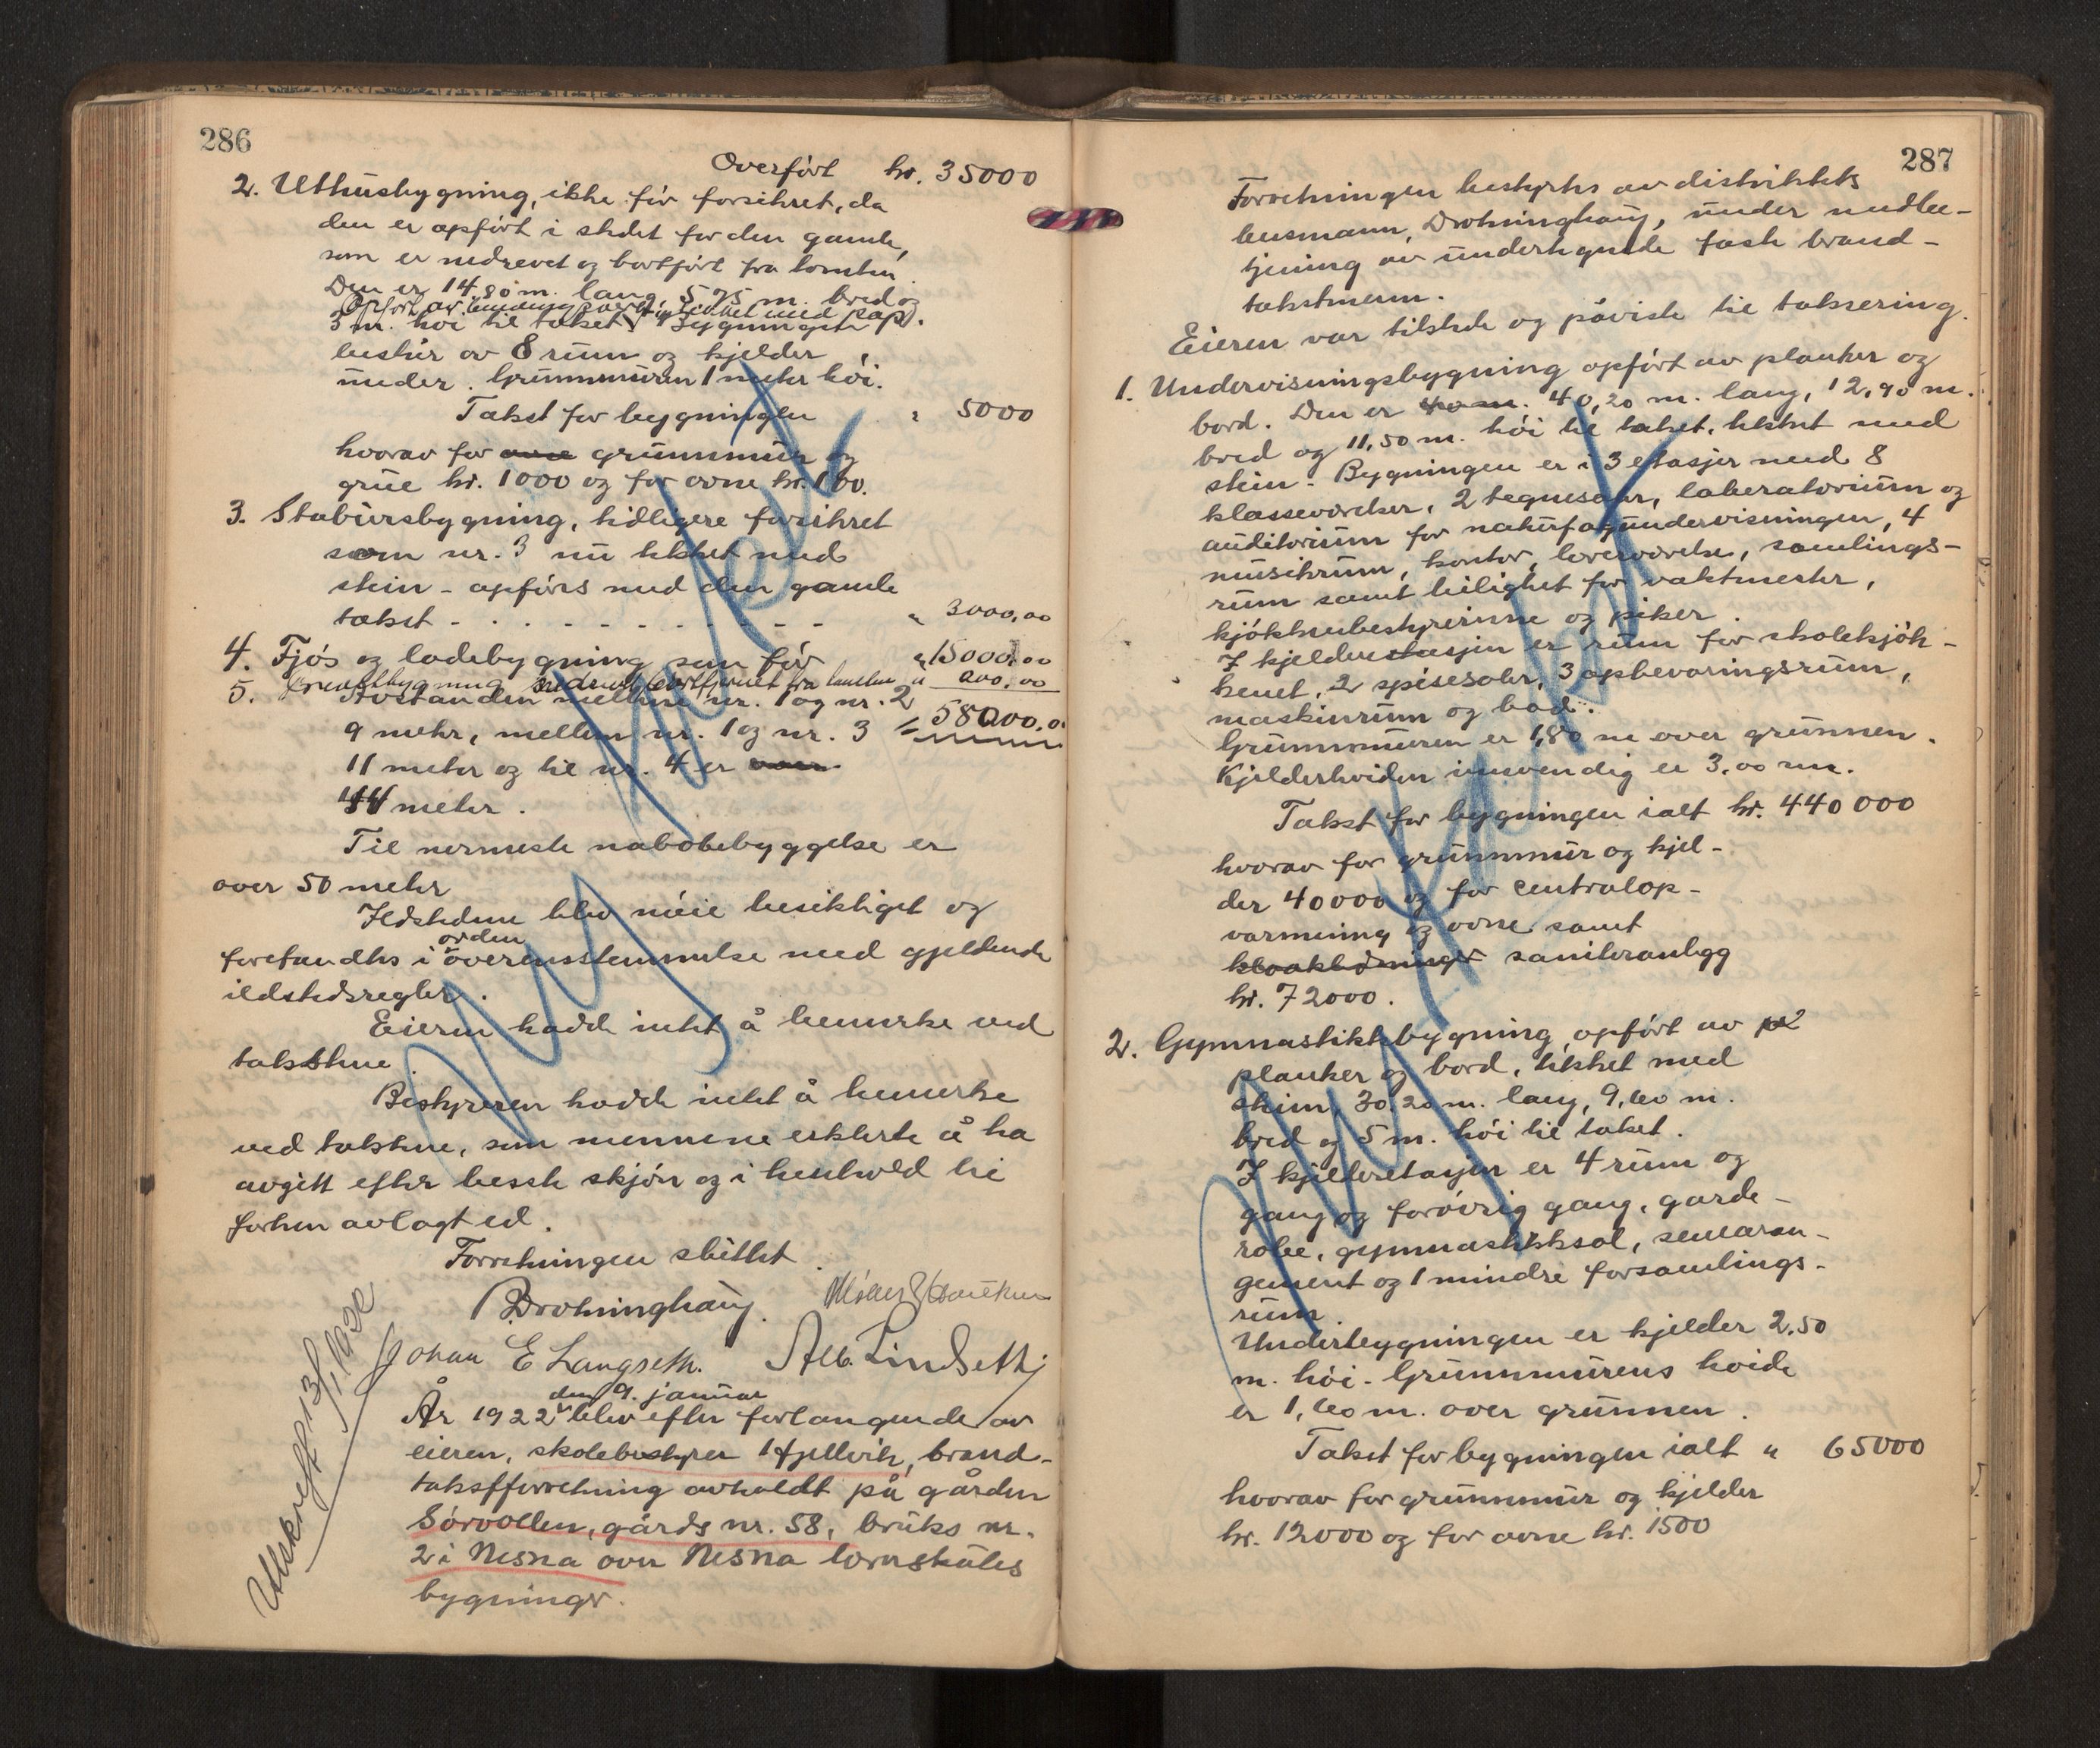 286
Overført kr. 35000
2. Uthusbygning, ikke før forsikret, da
den er opført i stedet for den gamle,
som er nedrevet og bortført fra tomten.
Den er 14,80 m. lang, 5,75 m. bred og
Opført av tekket med pap.
3 m. høi til taket. Bygningen
består av 8 rum og kjelder
under. Grunnmuren 1 meter høi.
Takst for bygningen " 5000
hvorav for ovne grunnmur og
grue kr. 1000 og for ovne kr. 100.
3. Stabursbygning, tidligere forsikret
som nr. 3 nu tekket med
stein - opføres med den gamle
takst - - - - - - - - - " 3000,00
4. Fjøs og ladebygning som før " 15000,00
5. fra tomten " 200,00
Avstanden mellem nr. 1 og nr. 2
9 meter, mellem nr. 1 og nr. 3 58200,00
11 meter og til nr. 4 er
44 meter.
Til nermeste nabobebyggelse er
over 50 meter
Ildstedene blev nøie besiktiget og
orden
foretandtes i overensstemmelse med gjeldende
ildstedsregler.
Eieren hadde intet å bemerke ved
takstene.
Bestyreren hadde intet å bemerke
ved takstene, som mennene erklerte å ha
avgitt efter beste skjøn og i henhold til
forhen avlagt ed.
Forretningen sluttet.
B. Drotninghaug.
Johan E Langseth. Alb. Lindseth
Utskreft 13/1 1922
den 9. januar
År 1922 blev efter forlangende av
eieren, skolebestyrer I Hjellvik, brand-
takstforretning avholdt på gården
Sørvollen, gårds nr. 58, bruks nr.
2 i Nesna over Nesna lærerskoles
bygninger.
287
Forretningen bestyrtes av distriktets
lensmann, Drotninghaug, under medbe-
tjening av undertegnede faste brand-
takstmenn.
Eieren var tilstede og påviste til taksering.
1. Undervisningsbygning opført av planker og
bord. Den er 40 m. 40,20 m. lang, 12,90 m.
bred og 11,50 m. høi til taket, tekket med
stein - Bygningen er i 3 etasjer med 8
klasseværelser, 2 tegnesaler, laberatorium og
auditorium for naturfagundervisningen, 4
musikrum, kontor, lærerværelse, samlings-
rum samt leilighet for vaktmester,
kjøkkenbestyrerinne og piker.
I kjelderetasjen er rum for skolekjøk-
kenet, 2 spisesaler, 3 opbevaringsrum,
maskinrum og bad.
Grunnmuren er 1,80 m over grunnen.
Kjelderhøiden innvendig er 3,00 m.
Takst for bygningen ialt kr. 440 000
hvorav for grunnmur og kjel-
der 40000 og for centralop-
varmning og ovne samt
kloakledninger saniteranlegg
kr. 72000.
2. Gymnastikkbygning, opført av
planker og bord, tekket med
skim, 30,20 m. lang, 9,60 m.
bred og 5 m. høi til taket.
I kjelderetasjen er 4 rum og
gang og forøvrig gang, garde-
robe, gymnastikksal, scenearan-
gement og 1 mindre forsamlings-
rum.
Underbygningen er kjelder 2,50
m. høi - Grunnmurens høide
er 1,60 m. over grunnen.
Takst for bygningen ialt " 65000
hvorav for grunnmur og kjelder
kr. 12000 og for ovne kr. 1500